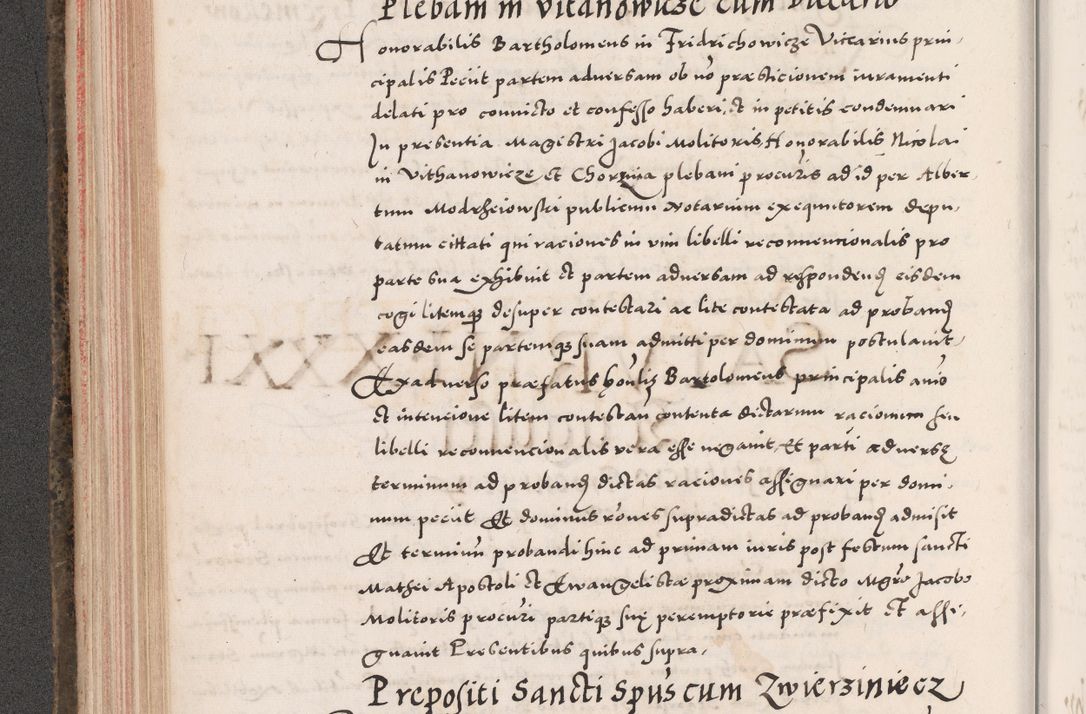 Plebani in Vitanowicze cum Vicario
Honorabilis Bartholomeus in Fridrichowicze Viccarius prin-
cipalis Peciit partem adversam ob nō præsticionem iuramenti
delati pro convicto et confesso haberi, et in petitis condemnari
In presentia Magistri Jacobi Molitoris Honorabilis Nicolai
in Vithanowicze et Chorzina plebani procuris ad id per Alber-
tum Modrzeiowski publicum Notarium exequutorem depu-
tatum cittati qui raciones in vim libelli reconvencionalis pro
parte sua exhibuit et partem adversam ad respondend eisdem
cogi litemq desuper contestari ac lite contestata ad proband
easdem se partemq suam admitti per dominum postulavit.
Exadverso præfatus honlis Bartolomeus principalis anio
et intencione litem contestan contenta dictarum racionum seu
libelli reconvencionalis vera esse negavit, Et parti adverse
terminum ad proband dictas raciones assignari per domi-
num peciit Et dominus rōnes supradictas ad proband admisit
Et terminū probandi hinc ad primam iuris post festum sancti
Mathei Apostoli et Ewangelistæ proximam dicto Mgro Jacobo
Molitoris procuri partiq suę peremptorie præfixit et assi-
gnavit Presentibus quibus supra.
Prepositi Sancti Spūs cum Zwierziniecz